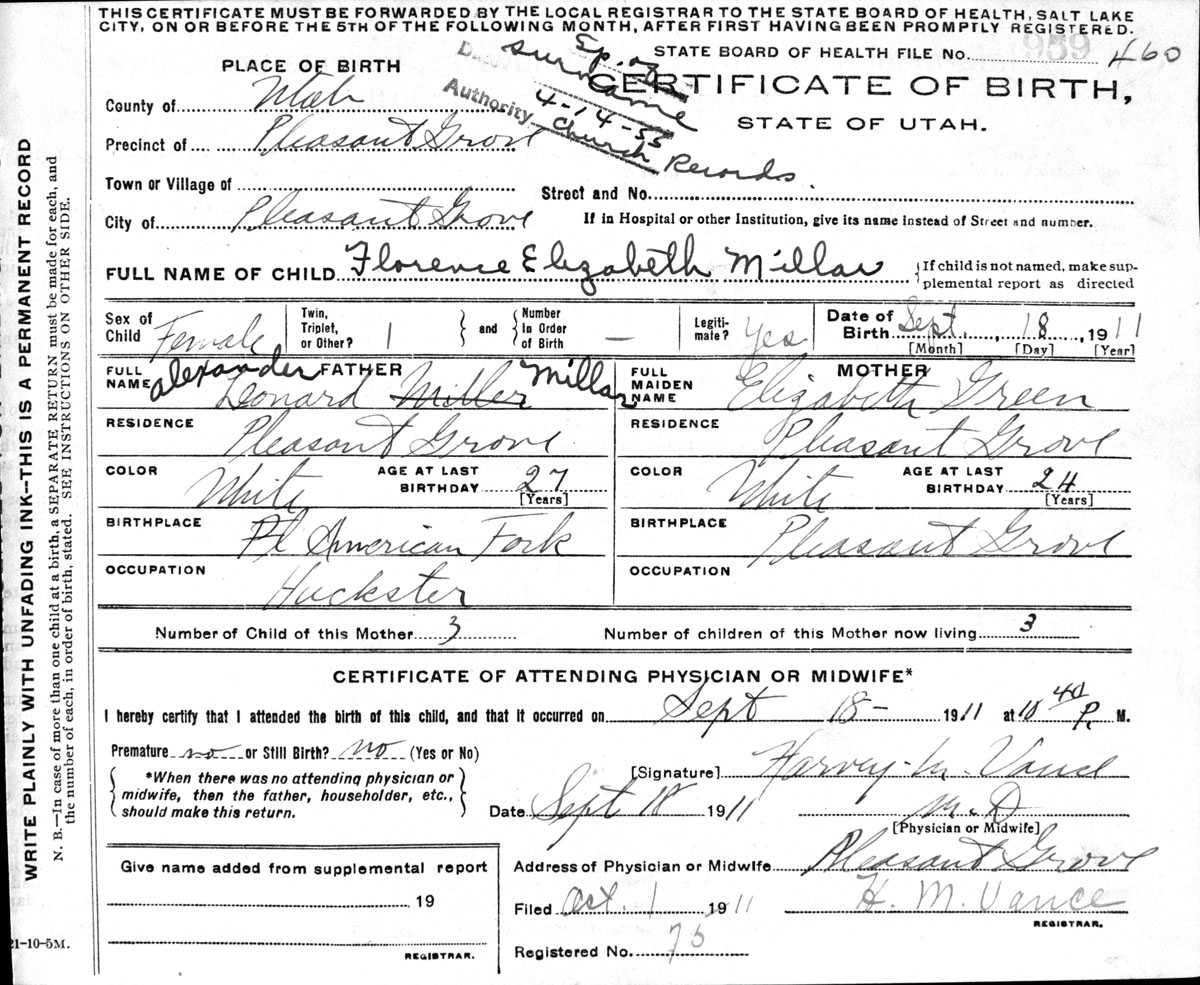 THIS CERTIFICATE MUST BE FORWARDED BY THE LOCAL REGISTRAR TO THE STATE BOARD OF HEALTH, SALT LAKE
CITY, ON OR BEFORE THE 5TH OF THE FOLLOWING MONTH, AFTER FIRST HAVING BEEN PROMPTLY REGISTERED.
STATE BOARD OF HEALTH FILE No. 959 460
PLACE OF BIRTH
CERTIFICATE OF BIRTH,
STATE OF UTAH.
surname
Authority 4-14-55
Church Records
County of Utah
Precinct of Pleasant Grove
Town or Village of
Street and No.
City of Pleasant Grove
If in Hospital or other Institution, give its name instead of Street and number.
FULL NAME OF CHILD Florence Elizabeth Millar
{If child is not named, make sup-
plemental report as directed
Sex of Child Female
Twin, Triplet, or Other? 1
and
Number In Order of Birth —
Legiti-mate? Yes
Date of Birth Sept. 18, 1911
[Month] [Day] [Year]
FATHER
FULL NAME Alexander Leonard Miller Millar
MOTHER
FULL MAIDEN NAME Elizabeth Green
RESIDENCE Pleasant Grove
RESIDENCE Pleasant Grove
COLOR White AGE AT LAST BIRTHDAY 27 [Years]
COLOR White AGE AT LAST BIRTHDAY 24 [Years]
BIRTHPLACE Pl American Fork
BIRTHPLACE Pleasant Grove
OCCUPATION Huckster
OCCUPATION
Number of Child of this Mother 3
Number of children of this Mother now living 3
CERTIFICATE OF ATTENDING PHYSICIAN OR MIDWIFE*
I hereby certify that I attended the birth of this child, and that it occurred on Sept 18- 1911 at 10 40 P. M.
Premature no or Still Birth? no (Yes or No)
*When there was no attending physician or
midwife, then the father, householder, etc.,
should make this return.
[Signature] Harvey M. Vance
Date Sept 18 1911 M.D
[Physician or Midwife]
Give name added from supplemental report
19
REGISTRAR.
Address of Physician or Midwife Pleasant Grove
Filed Oct. 1 1911 H. M. Vance
REGISTRAR.
Registered No. 75
21-10-5M.
WRITE PLAINLY WITH UNFADING INK—THIS IS A PERMANENT RECORD
N. B.—In case of more than one child at a birth, a SEPARATE RETURN must be made for each, and
the number of each, in order of birth, stated. SEE INSTRUCTIONS ON OTHER SIDE.